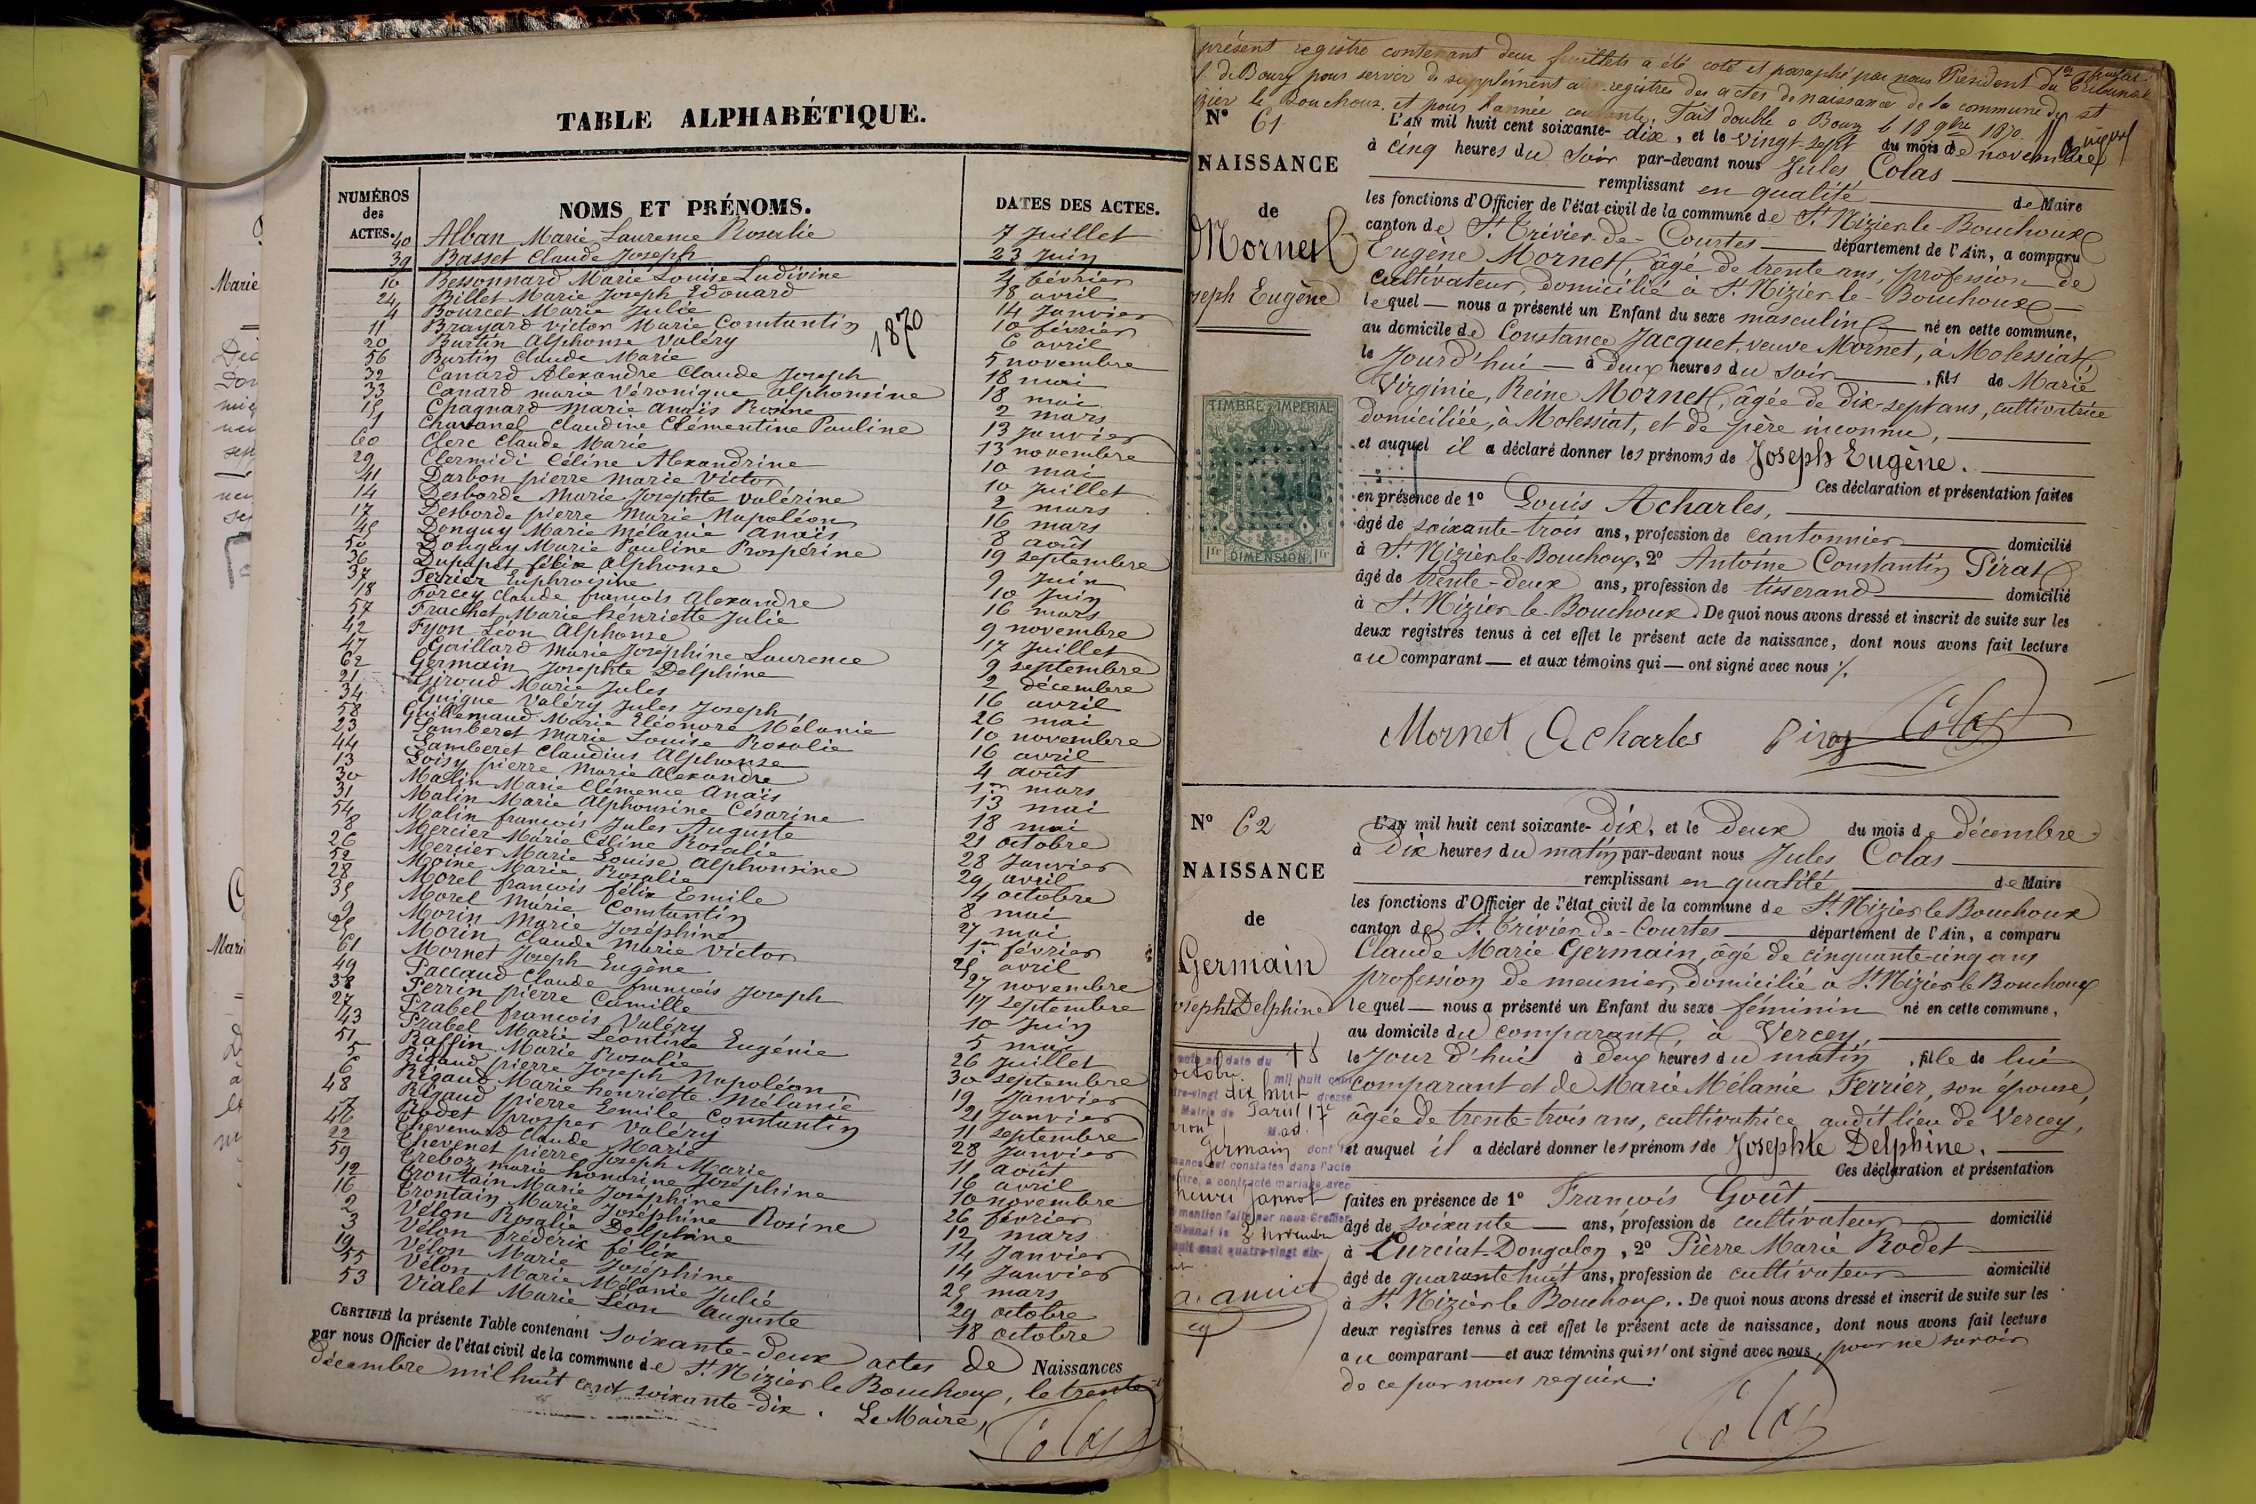 TABLE ALPHABÉTIQUE.
NUMÉROS des ACTES. NOMS ET PRÉNOMS. DATES DES ACTES.
1870
40 Alban Marie Laurence Rosalie 7 Juillet
39 Basset Claude Joseph 23 Juin
10 Bessonnard Marie Louise Ludivine 4 février
24 Billet Marie Joseph Edouard 18 avril
4 Bourcet Marie Julie 14 Janvier
11 Brayard Victor Marie Constantin 10 février
20 Burtin Alphonse Valéry 6 avril
56 Burtin Claude Marie 5 novembre
32 Canard Alexandre Claude Joseph 18 mai
33 Canard Marie Véronique Alphonsine 18 mai
15 Chagnard Marie Anaïs Rosine 2 mars
1 Chavanel Claudine Clémentine Pauline 13 Janvier
60 Clerc Claude Marie 13 novembre
29 Clermidi Céline Alexandrine 10 mai
41 Darbon pierre Marie Victor 10 Juillet
14 Desborde Marie Josephte Valérine 2 mars
17 Desborde pierre Marie Napoléon 16 mars
45 Donguy Marie Mélanie Anaïs 8 août
50 Donguy Marie Pauline Prospérine 19 septembre
36 Dupupet félix Alphonse 9 Juin
37 Ferrier Euphrosine 10 Juin
18 Forcey Claude françois Alexandre 16 mars
57 Frachet Marie henriette Julie 9 novembre
42 Fyon Léon Alphonse 17 Juillet
47 Gaillard Marie Joséphine Laurence 9 septembre
62 Germain Josephte Delphine 2 décembre
21 Giroud Marie Jules 16 avril
34 Guigue Valéry Jules Joseph 26 mai
58 Guillemaud Marie Eléonore Mélanie 10 novembre
23 Lamberet Marie Louise Rosalie 16 avril
44 Lamberet Claudius Alphonse 4 août
13 Loisy pierre Marie Alexandre 1er mars
30 Malin Marie Clémence Anaïs 13 mai
31 Malin Marie Alphonsine Césarine 18 mai
54 Malin françois Jules Auguste 21 octobre
8 Mercier Marie Céline Rosalie 28 Janvier
26 Mercier Marie Louise Alphonsine 29 avril
52 Moine Marie Rosalie 14 octobre
28 Morel françois félix Emile 8 mai
35 Morel Marie Constantin 27 mai
9 Morin Marie Joséphine 1er février
25 Morin Claude Marie Victor 25 avril
61 Mornet Joseph Eugène 27 novembre
49 Paccaud Claude françois Joseph 17 septembre
38 Perrin pierre Camille 10 Juin
27 Prabel françois Valéry 5 mai
43 Prabel Marie Léontine Eugénie 26 Juillet
51 Raffin Marie Rosalie 30 septembre
5 Rigaud pierre Joseph Napoléon 19 Janvier
6 Rigaud Marie henriette Mélanie 21 Janvier
48 Rigaud pierre Emile Constantin 11 septembre
7 Rodet prosper Valéry 28 Janvier
46 Thevenard Claude Marie 11 août
22 Thevenet pierre Joseph Marie 16 avril
59 Treboz marie honorine Joséphine 10 novembre
12 Trontain Marie Joséphine 26 février
16 Trontain Marie Joséphine Rosine 12 mars
2 Vélon Rosalie Delphine 14 Janvier
3 Vélon frédérix félix 14 Janvier
19 Vélon Marie Joséphine 25 mars
55 Vélon Marie Mélanie Julie 29 octobre
53 Vialet Marie Léon Auguste 18 octobre
CERTIFIÉ la présente Table contenant soixante-deux actes de Naissances
par nous Officier de l'état civil de la commune de St Nizier le Bouchoux, le trente-
décembre mil huit cent soixante-dix. Le Maire,
Colas
présent registre contenant deux feuillets a été coté et paraphé par nous Président du Tribunal
de Bourg pour servir de supplément aux registres des actes de naissance de la commune de st
Nizier le Bouchoux et pour l'année courante. Fait double à Bourg le 18 9bre 1870
N° 61
NAISSANCE
de
Mornet
Joseph Eugène
L'AN mil huit cent soixante-dix, et le vingt-sept du mois de novembre
à cinq heures du soir par-devant nous Jules Colas
remplissant en qualité de Maire
les fonctions d'Officier de l'état civil de la commune de St Nizier-le-Bouchoux
canton de St Trivier-de-Courtes département de l'Ain, a comparu
Eugène Mornet, âgé de trente ans, profession de
cultivateur, domicilié à St Nizier-le-Bouchoux
lequel nous a présenté un Enfant du sexe masculin né en cette commune,
au domicile de Constance Jacquet, veuve Mornet, à Molessiat,
le Jour d'hui à deux heures du soir, fils de Marie
Virginie, Reine Mornet, âgée de dix-sept ans, cultivatrice
domiciliée, à Molessiat, et de père inconnu,
et auquel il a déclaré donner les prénoms de Joseph Eugène.
Ces déclaration et présentation faites
en présence de 1° Louis Acharles,
âgé de soixante-trois ans, profession de cantonnier domicilié
à St Nizier-le-Bouchoux, 2° Antoine Constantin Pirat
âgé de trente-deux ans, profession de tisserand domicilié
à St Nizier le Bouchoux. De quoi nous avons dressé et inscrit de suite sur les
deux registres tenus à cet effet le présent acte de naissance, dont nous avons fait lecture
au comparant et aux témoins qui ont signé avec nous ./.
Mornet Acharles Pirat Colas
TIMBRE IMPÉRIAL
1 fr DIMENSION 1 fr
N° 62
NAISSANCE
de
Germain
Josephte Delphine
L'AN mil huit cent soixante-dix, et le deux du mois de décembre
à dix heures du matin par-devant nous Jules Colas
remplissant en qualité de Maire
les fonctions d'Officier de l'état civil de la commune de St Nizier le Bouchoux
canton de St Trivier-de-Courtes département de l'Ain, a comparu
Claude Marie Germain, âgé de cinquante-cinq ans
profession de meunier, domicilié à St Nizier le Bouchoux
lequel nous a présenté un Enfant du sexe féminin né en cette commune,
au domicile du comparant, à Vercey,
le Jour d'hui à deux heures du matin, fille de lui
comparant et de Marie Mélanie Ferrier, son épouse,
âgée de trente-trois ans, cultivatrice audit lieu de Vercey,
et auquel il a déclaré donner les prénoms de Josephte Delphine.
Ces déclaration et présentation
faites en présence de 1° François Goût
âgé de soixante ans, profession de cultivateur domicilié
à Curciat-Dongalon, 2° Pièrre Marie Rodet
âgé de quarante huit ans, profession de cultivateur domicilié
à St Nizier le Bouchoux. De quoi nous avons dressé et inscrit de suite sur les
deux registres tenus à cet effet le présent acte de naissance, dont nous avons fait lecture
au comparant et aux témoins qui n'ont signé avec nous, pour ne savoir
de ce par nous requis.
Colas
date du 18
octobre mil huit cent
quatre-vingt dix huit dressé
Mairie de Paris 17e
Germain dont
constatée dans l'acte
a contracté mariage avec
henri Jannot
mention faite par nous Greffier
2 novembre
huit cent quatre-vingt dix-